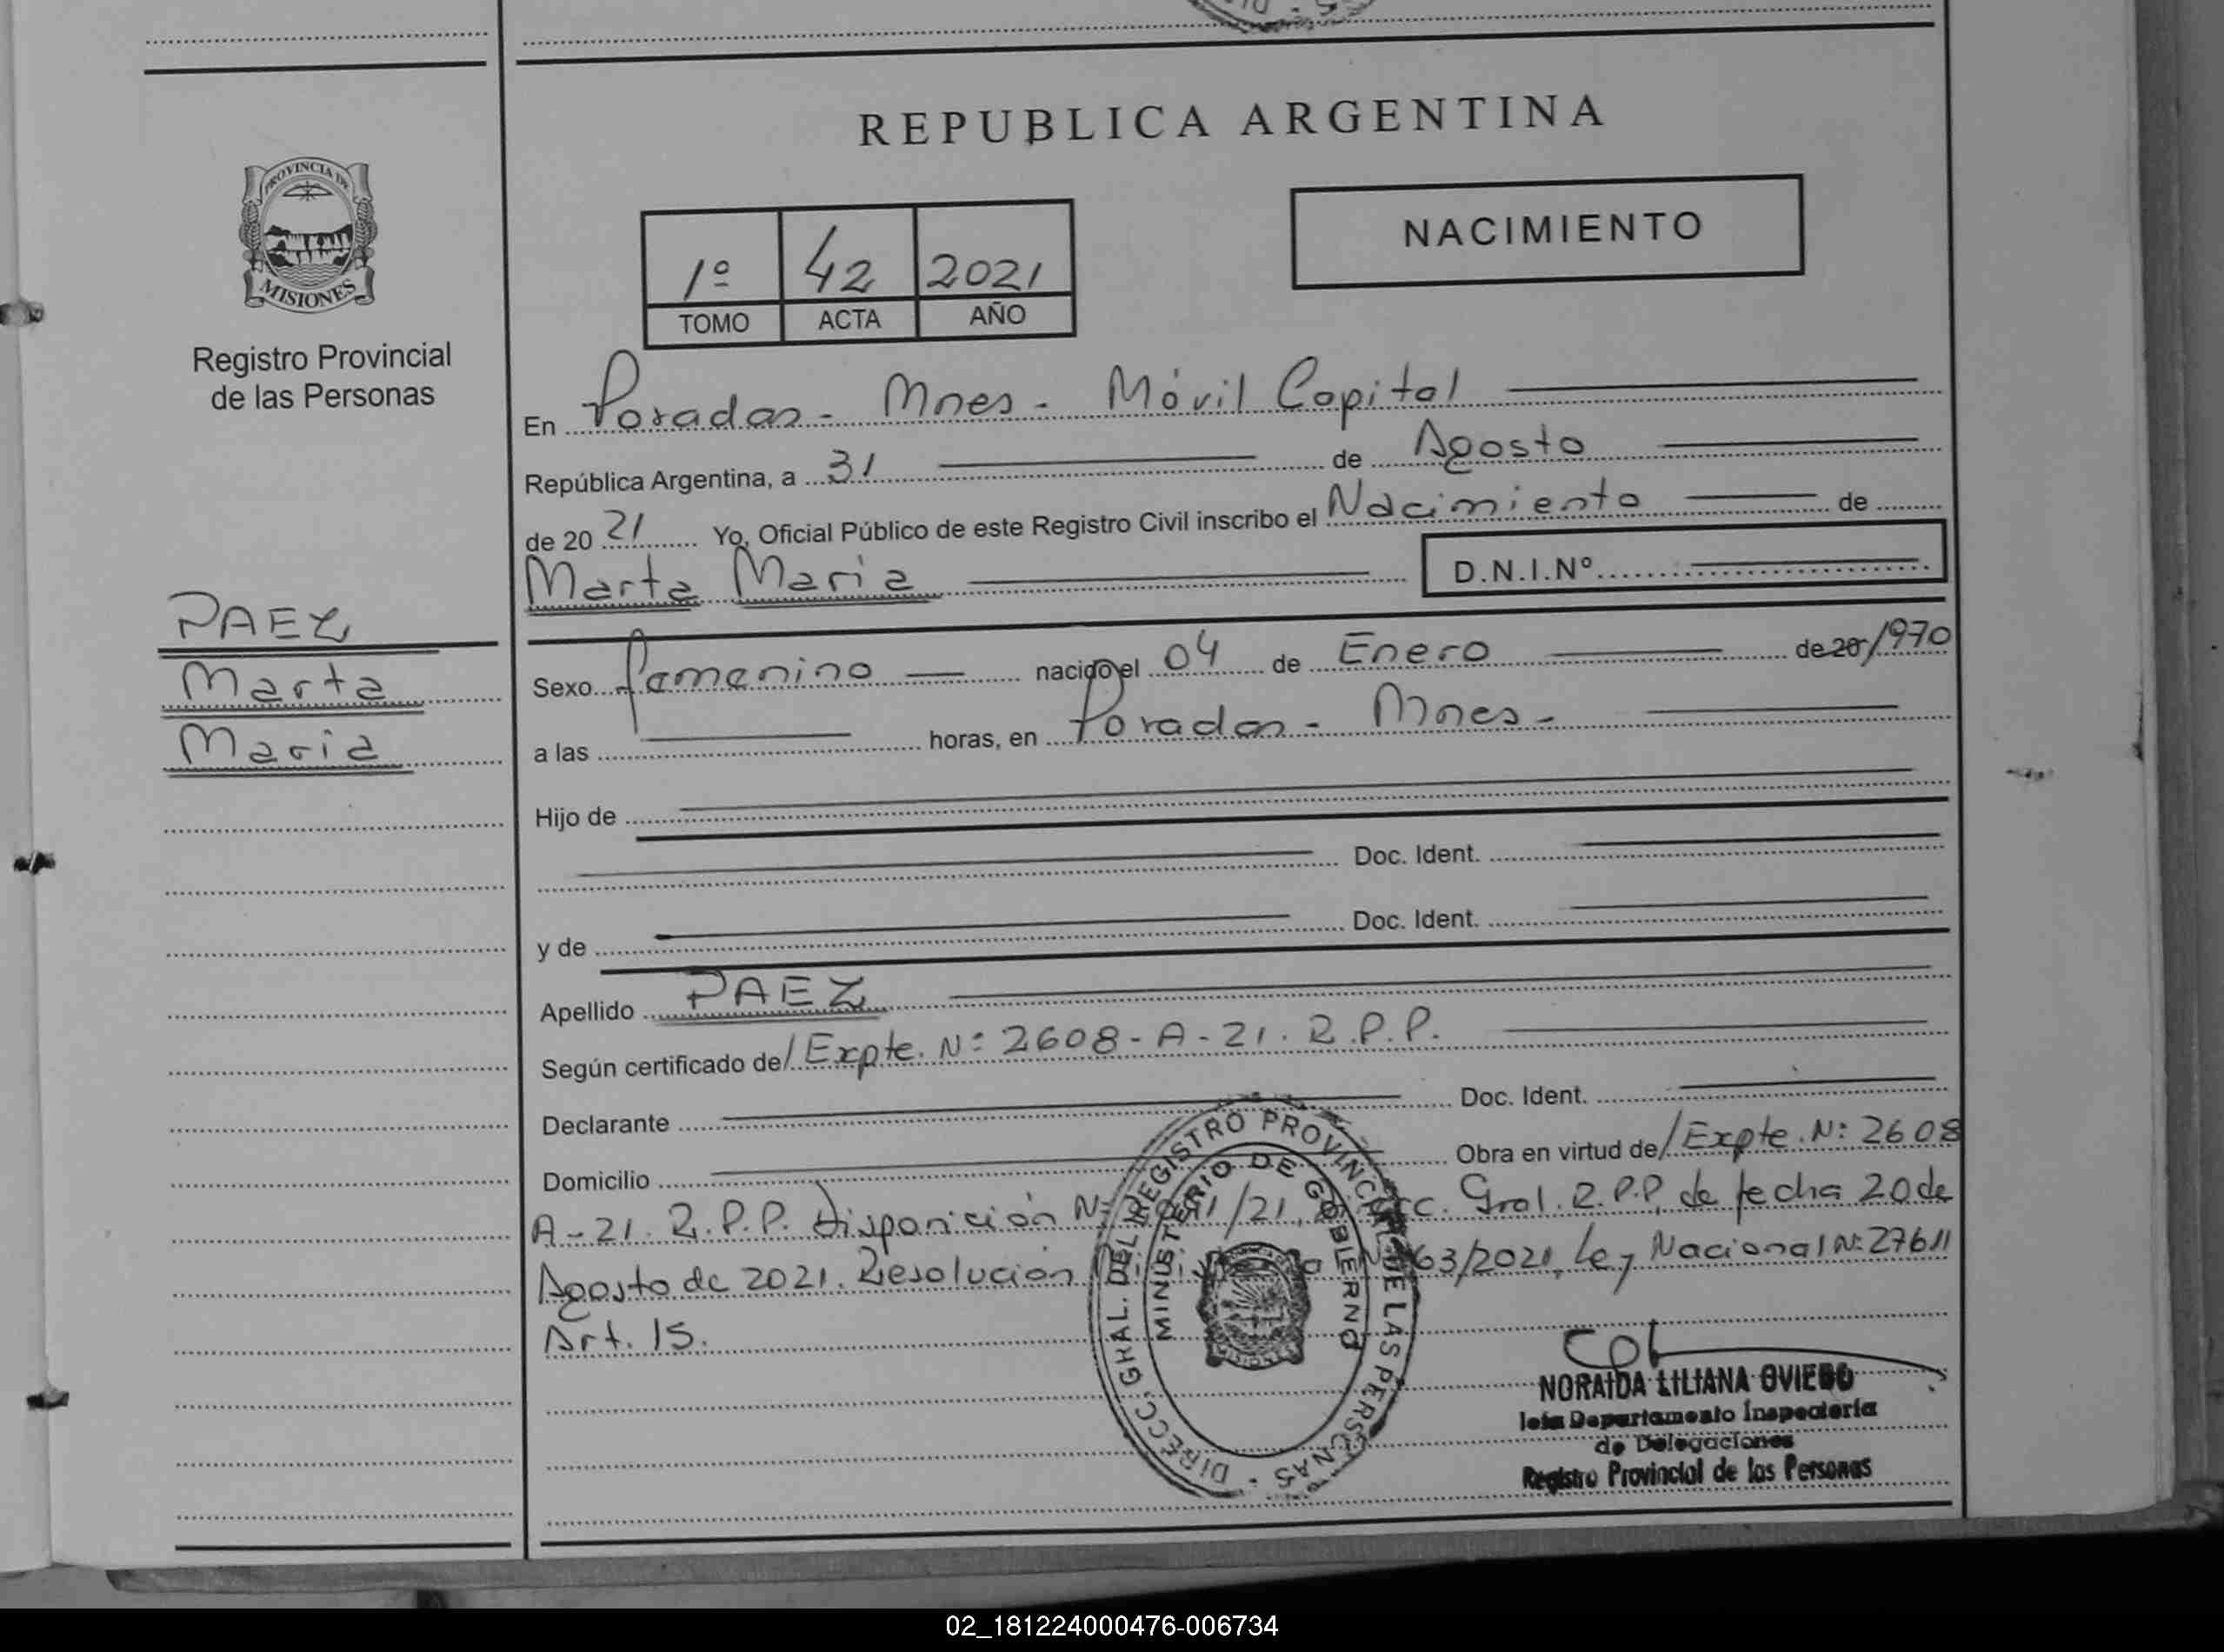 REPUBLICA ARGENTINA
PROVINCIA DE
MISIONES
Registro Provincial
de las Personas
NACIMIENTO
1º 42 2021
TOMO ACTA AÑO
En Posadas - Mnes - Móvil Capital
República Argentina, a 31 de Agosto
de 20 21 Yo, Oficial Público de este Registro Civil inscribo el Nacimiento de
Marta Maria D.N.I.Nº
PAEZ
Marta
Maria
Sexo femenino nacido el 04 de Enero de 20/1970
a las horas, en Posadas - Mnes -
Hijo de
Doc. Ident.
y de Doc. Ident.
Apellido PAEZ
Según certificado de/ Expte. Nº 2608 - A - 21. R.P.P.
Declarante Doc. Ident.
Domicilio Obra en virtud de/ Expte. Nº 2608
A - 21. R.P.P. Disposición Nº /21, Gral. R.P.P, de fecha 20 de
Agosto de 2021. Resolución 63/2021, Ley Nacional Nº 27611
Art. 15.
DIRECC. GRAL. DEL REGISTRO PROVINCIAL DE LAS PERSONAS
MINISTERIO DE GOBIERNO
NORAIDA LILIANA OVIEDO
Jefa Departamento Inspectoría
de Delegaciones
Registro Provincial de las Personas
02_181224000476-006734